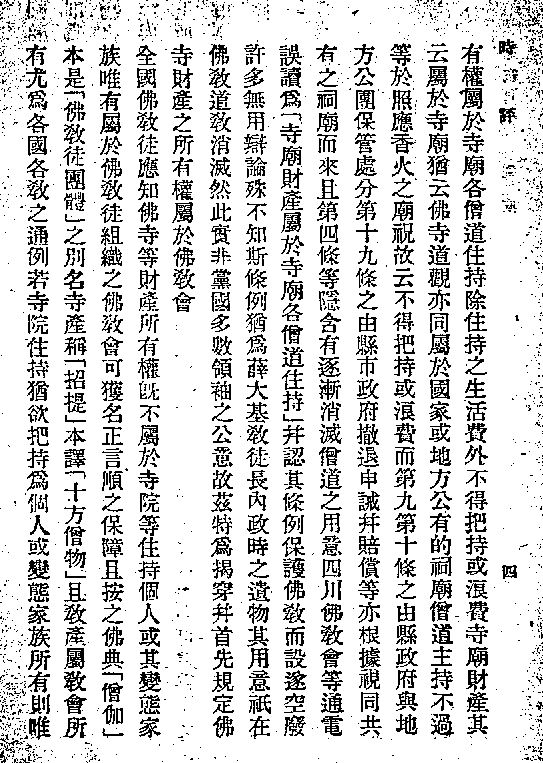 時評
四
有權屬於寺廟各僧道住持除住持之生活費外不得把持或浪費寺廟財產其
云屬於寺廟猶云佛寺道觀亦同屬於國家或地方公有的祠廟僧道主持不過
等於照應香火之廟祝故云不得把持或浪費而第九第十條之由縣政府與地
方公團保管處分第十九條之由縣市政府撤退申誡幷賠償等亦根據視同共
有之祠廟而來且第四條等隱含有逐漸消滅僧道之用意四川佛敎會等通電
誤讀爲「寺廟財產屬於寺廟各僧道住持」幷認其條例保護佛敎而設遂空廢
許多無用辯論殊不知斯條例猶爲薛大基敎徒長內政時之遺物其用意祇在
佛敎道敎消滅然此實非黨國多數領袖之公意故茲特爲揭穿幷首先規定佛
寺財產之所有權屬於佛敎會
全國佛敎徒應知佛寺等財產所有權旣不屬於寺院等住持個人或其變態家
族唯有屬於佛敎徒組織之佛敎會可獲名正言順之保障且按之佛典「僧伽」
本是「佛敎徒團體」之別名寺產稱「招提」本譯「十方僧物」且敎產屬敎會所
有尤爲各國各敎之通例若寺院住持猶欲把持爲個人或變態家族所有則唯